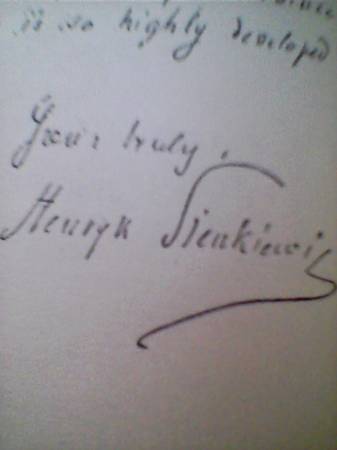 is so highly developed
Your's truly,
Henryk Sienkiewicz